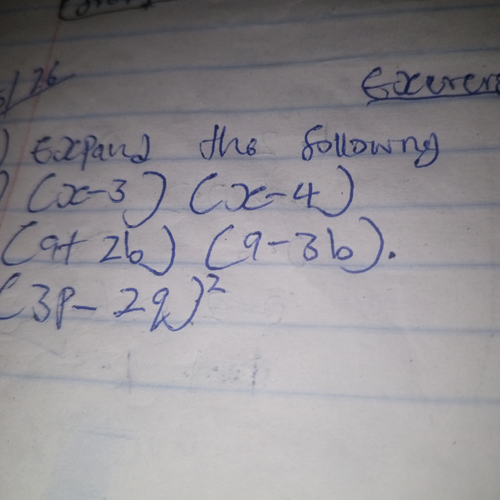 26
) Expand the following
) (x-3) (x-4)
(a+2b) (a-3b).
(3p-2q)²